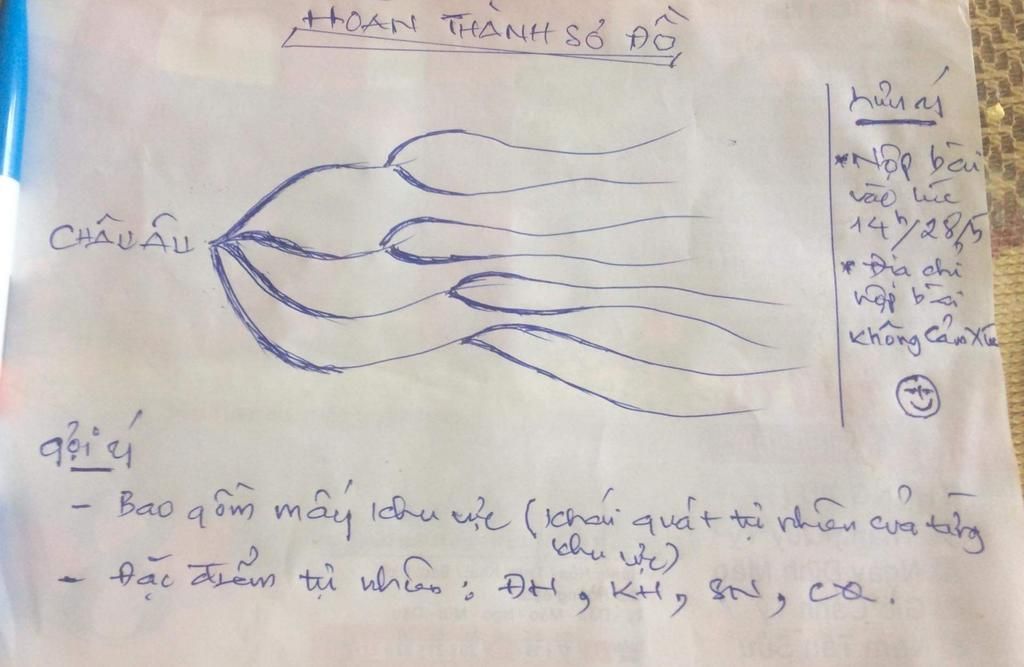 HOÀN THÀNH SƠ ĐỒ
CHÂU ÂU
Lưu ý
* Nộp bài
vào lúc
14h/28/5
* Địa chỉ
nộp bài
không cảm xúc
gợi ý
- Bao gồm mấy khu vực (khái quát tự nhiên của từng
khu vực)
- Đặc điểm tự nhiên: ĐH, KH, SN, CQ.